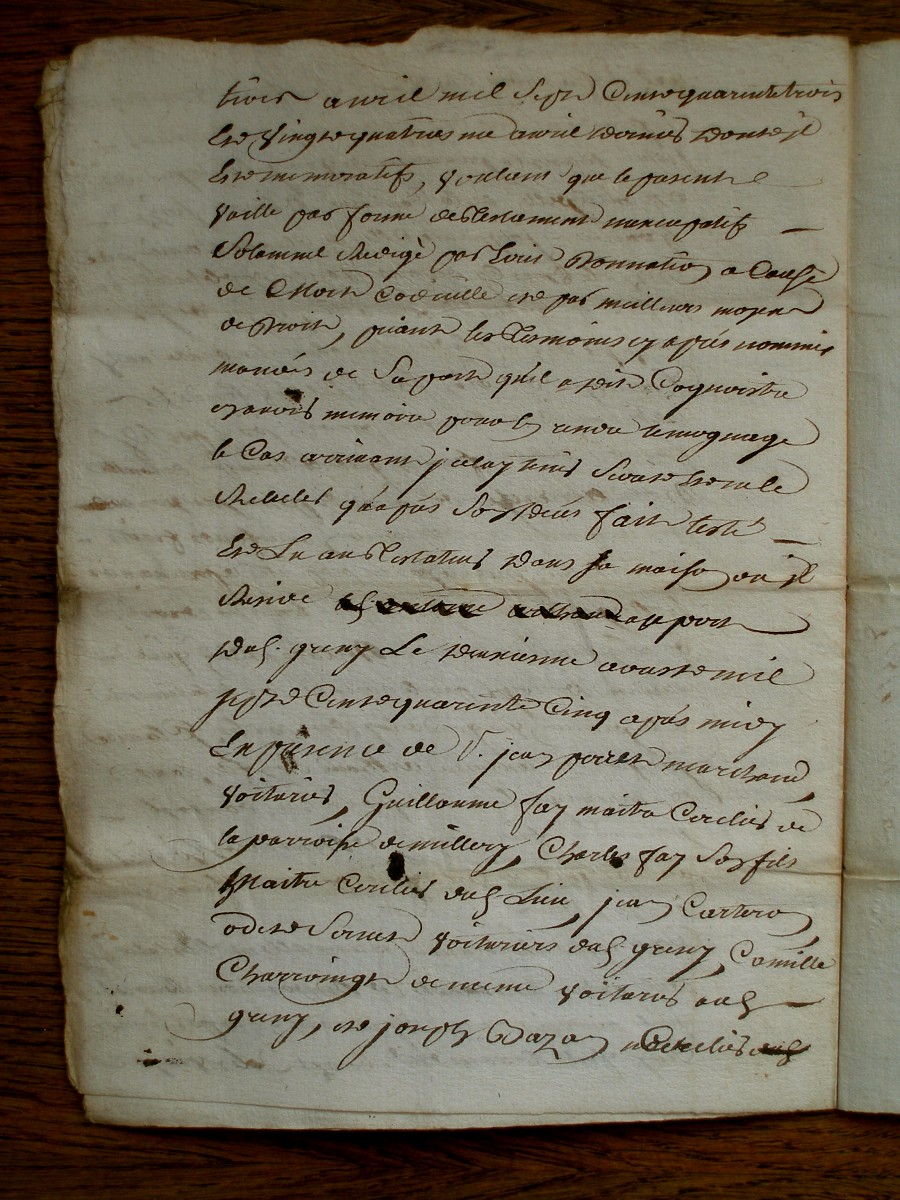 trois avril mil sept cent quarente trois
et vingt quatrieme avril dernier dont il
est memoratifs, voulant que le present
vaille par forme de testament nuncupatifs
solemnel redigé par écrit donnation a cause
de mort codicille et par meilleurs moyens
de droit, priant les tesmoins cy après nommés
de sa part qu'il a dit cognoistre
avoir memoire pour en rendre temognage
le cas arrivant
qu'apres son deces fait testé
et lu au testateur dans sa maison ou il
reside au port
dud. grigny le deuxieme aoust mil
sept cent quarente cinq après midy
en presence de Sr. jean perret marchand
voiturier, Guillaume fay maitre cerclier de
la parroisse de millery, Charles fay son fils
maitre cerclier dud. lieu, jean
voituriers dud. grigny, Camille
de meme voiturier aud.
grigny, et joseph